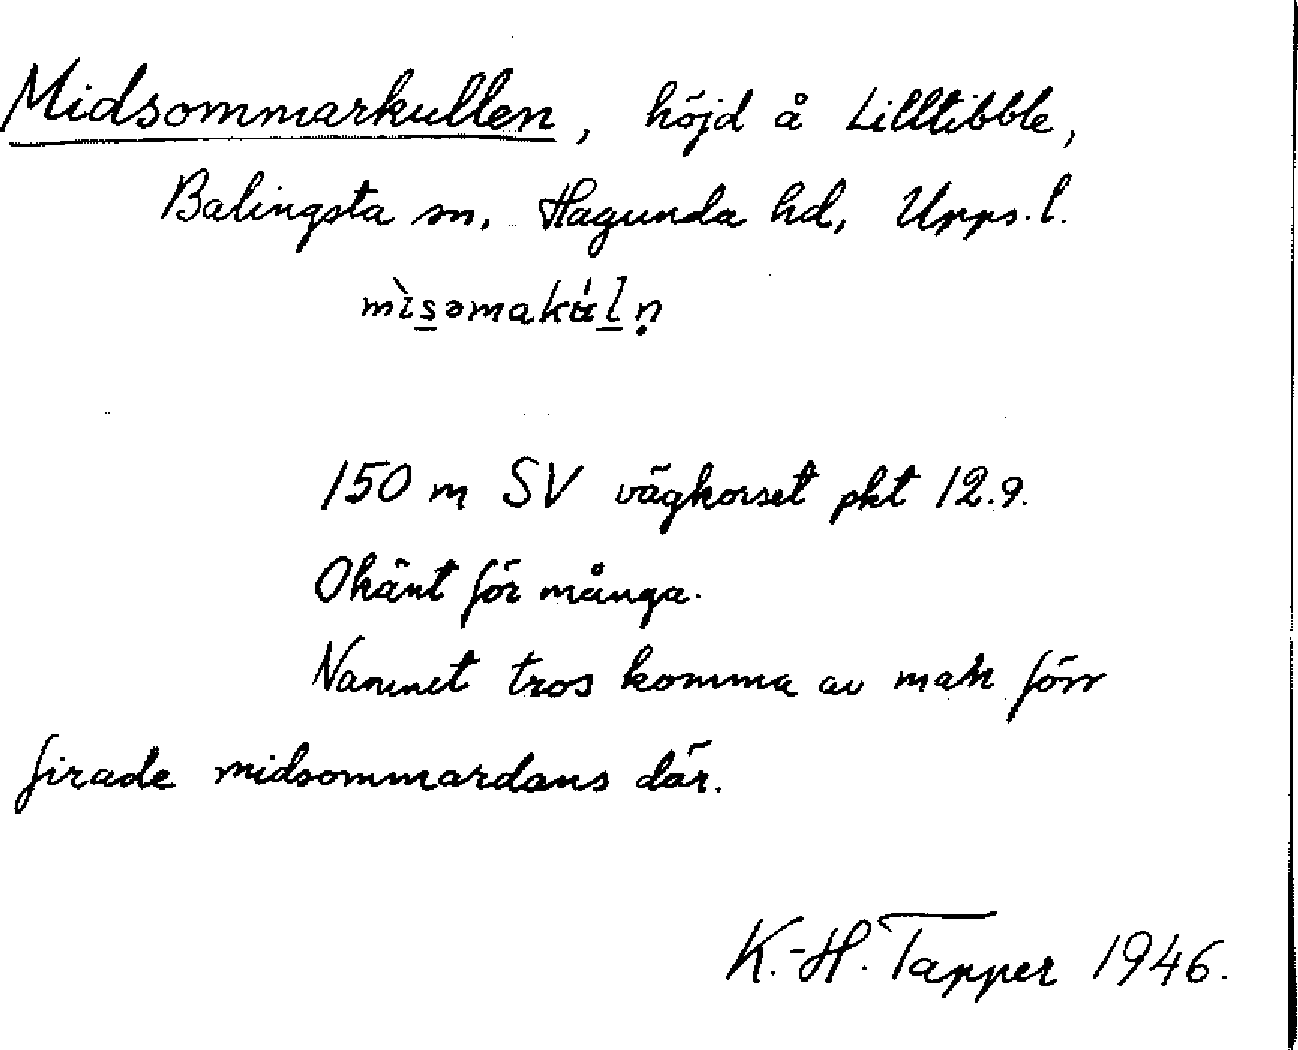 Midsommarkullen, höjd å Lilltibble,
Balingsta sn, Hagunda hd, Upps. l.
mìsəmakʉ́ln̥
150 m SV vägkorset pkt 12.9.
Okänt för många.
Namnet tros komma av mak förr
firade midsommardans där.
K.-H. Tapper 1946.